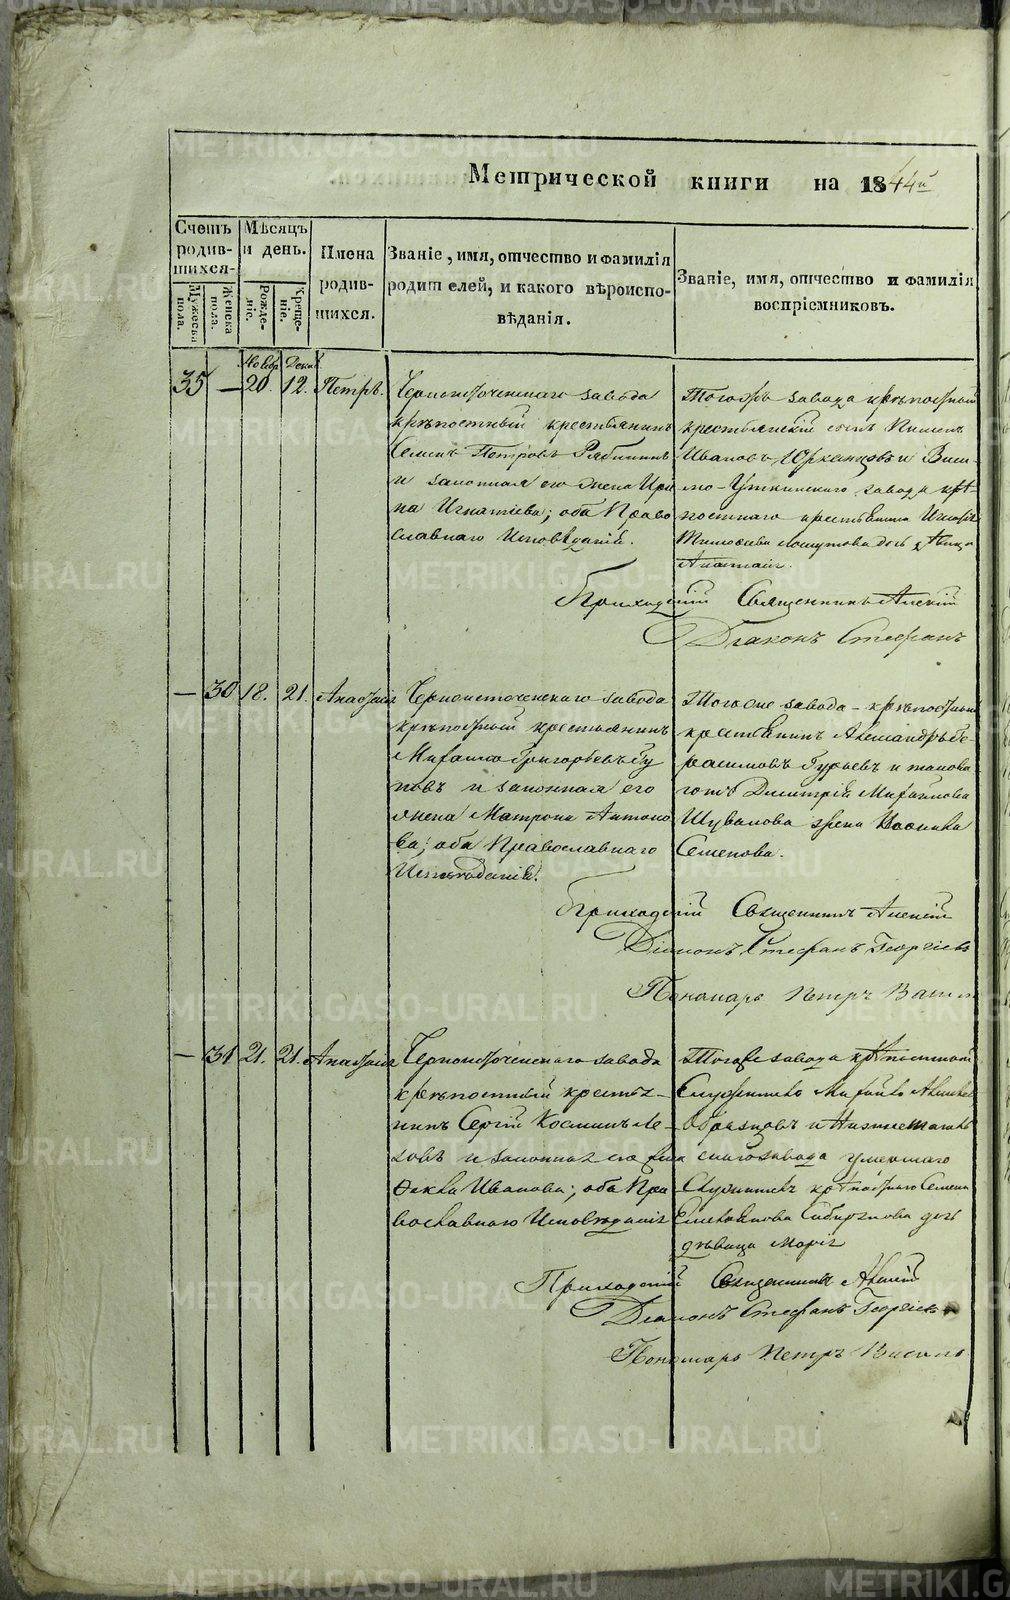 Метрической книги на 1844й
Счетъ родив-шихся.
Мѣсяцъ и день.
Имена родив-шихся.
Званіе, имя, отчество и фамилія
родителей, и какого вѣроиспо-
вѣданія.
Званіе, имя, отчество и фамилія
воспріемниковъ.
Мужеска пола.
Женска пола.
Рожде-ніе.
Креще-ніе.
Ноябр Декаб
35 — 20. 12. Петръ.
Черноисточенскаго завода
крѣпостный крестьянинъ
Семенъ Петровъ Рябининъ
и законная его жена Ири
на Игнатіева; оба Право
славнаго Исповѣданія.
Тогожъ завода крѣпостный
крестьянскій сынъ Пименъ
Ивановъ и Виси-
мо-Уткинскаго завода крѣ-
постнаго крестьянина
дочь дѣвица
Приходскій Священникъ Алексій
Діаконъ Стефанъ
— 30 18. 21. Анастасія
Черноисточенскаго завода
крѣпостный крестьянинъ
Михайло Григорьевъ Бу
ковъ и законная его
жена Матрона Антоно
ва; оба Православнаго
Исповѣданія.
Тогоже завода крѣпостный
крестьянинъ Александръ Ге-
расимовъ Гурьевъ и таково
гожъ Димитрія Михайлова
Шувалова жена Васлива
Семенова.
Приходскій Священникъ Алексій
Діаконъ Стефанъ Георгіевъ
Пономарь Петръ Васил
— 31 21. 21. Анастасія
Черноисточенскаго завода
крѣпостный крестья-
нинъ Сергій Косминъ Ле-
ховъ и законная его жена
Ѳекла Иванова; оба Пра
вославнаго Исповѣданія
Тогоже завода крѣпостный
Служитель Михайло Алексѣевъ
Образцовъ и Нижнетагиль
скаго завода умершаго
Служителя крѣпостнаго Семена
Емельянова Сибирякова дочь
дѣвица Марія
Приходскій Священникъ Алексій
Діаконъ Стефанъ Георгіевъ
Пономарь Петръ Василь
METRIKI.GASO-URAL.RU